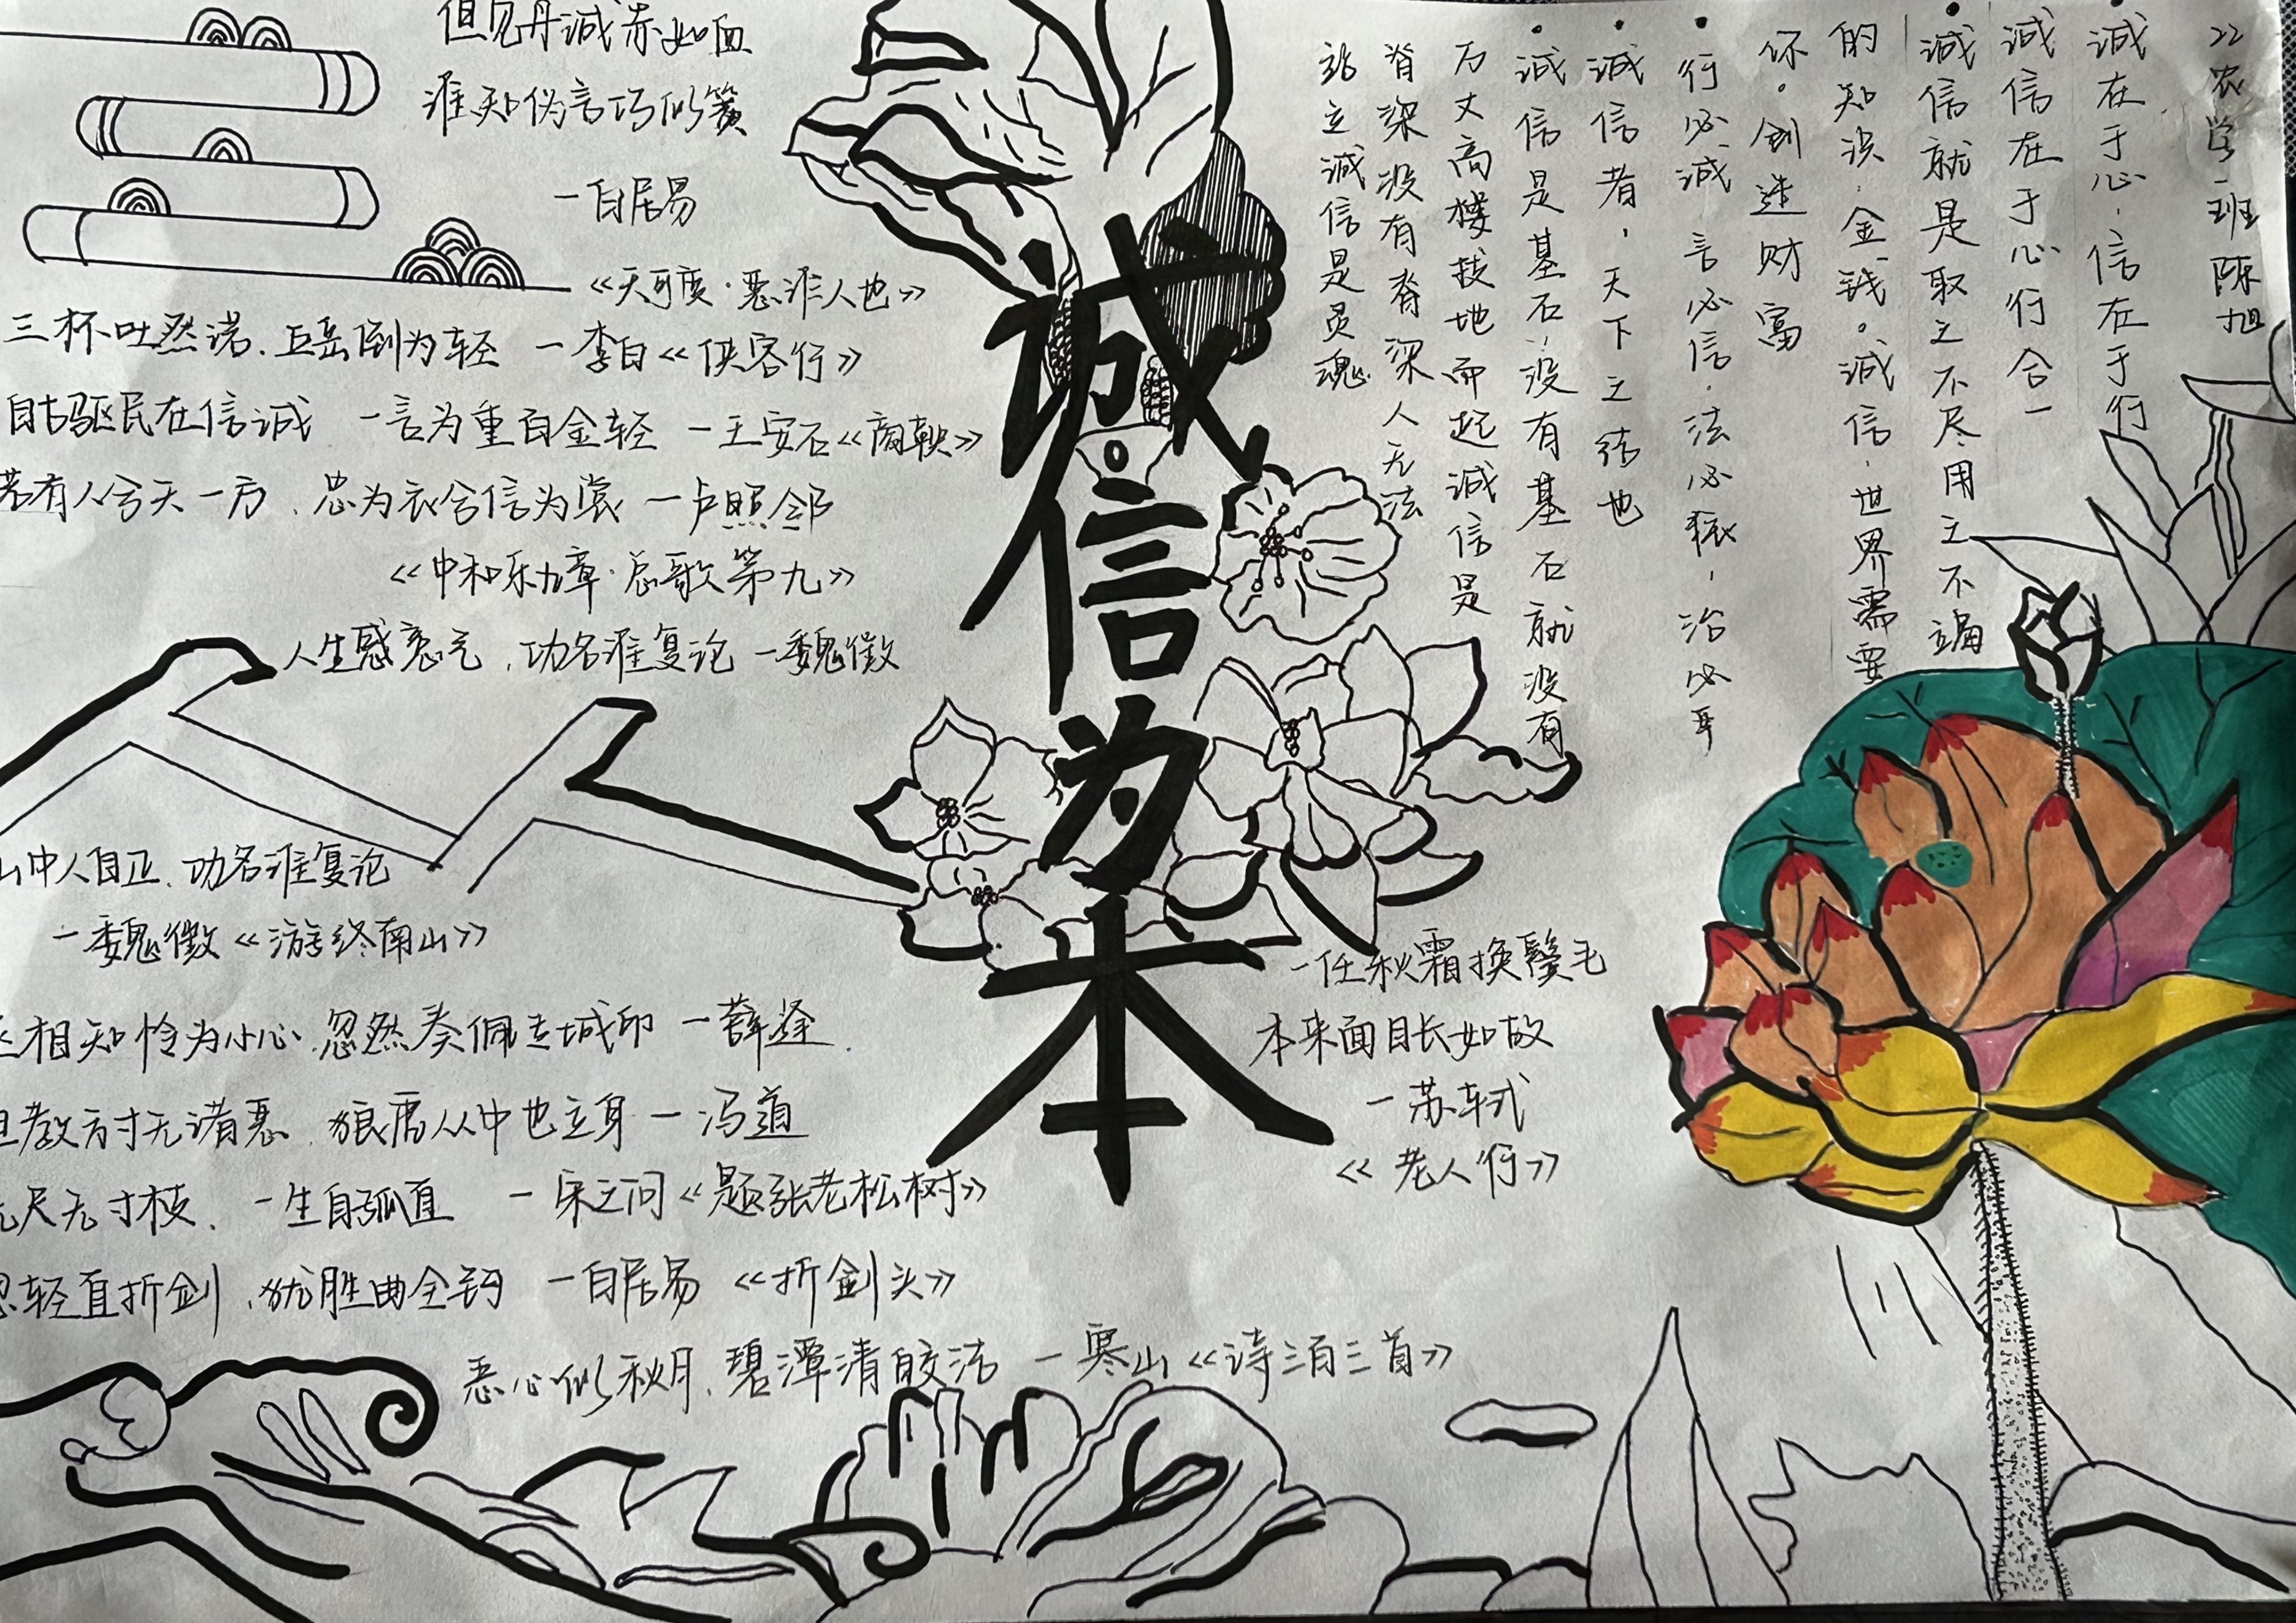 但见丹诚赤如血
谁知伪言巧似簧
一白居易
《天可度·恶诈人也》
三杯吐然诺、五岳倒为轻 一李白《侠客行》
自古驱民在信诚 一言为重百金轻 一王安石《商鞅》
若有人兮天一方、忠为衣兮信为裳 一卢照邻
《中和乐九章·总歌第九》
人生感意气、功名谁复论 一魏徵
山中人自正、功名谁复论
一魏徵《游终南山》
相知怜为小心、忽然奏佩专城印 一薛逢
教方寸无诸恶、狼虎丛中也立身 一冯道
尺无寸枝、一生自孤直 一宋之问《题张老松树》
轻直折剑、犹胜曲全钩 一白居易《折剑头》
心似秋月、碧潭清皎洁 一寒山《诗三百三首》
诚信为本
一任秋霜换鬓毛
本来面目长如故
一苏轼
《老人行》
22农学一班 陈旭
诚在于心,信在于行
诚信在于心行合一
诚信就是取之不尽用之不竭
的知识、金钱。诚信、世界需要
你。创造财富
行必诚 言必信、法必
诚信者,天下之结也
诚信是基石、没有基石就没有
万丈高楼拔地而起诚信是
脊梁没有脊梁人无法
站立诚信是灵魂